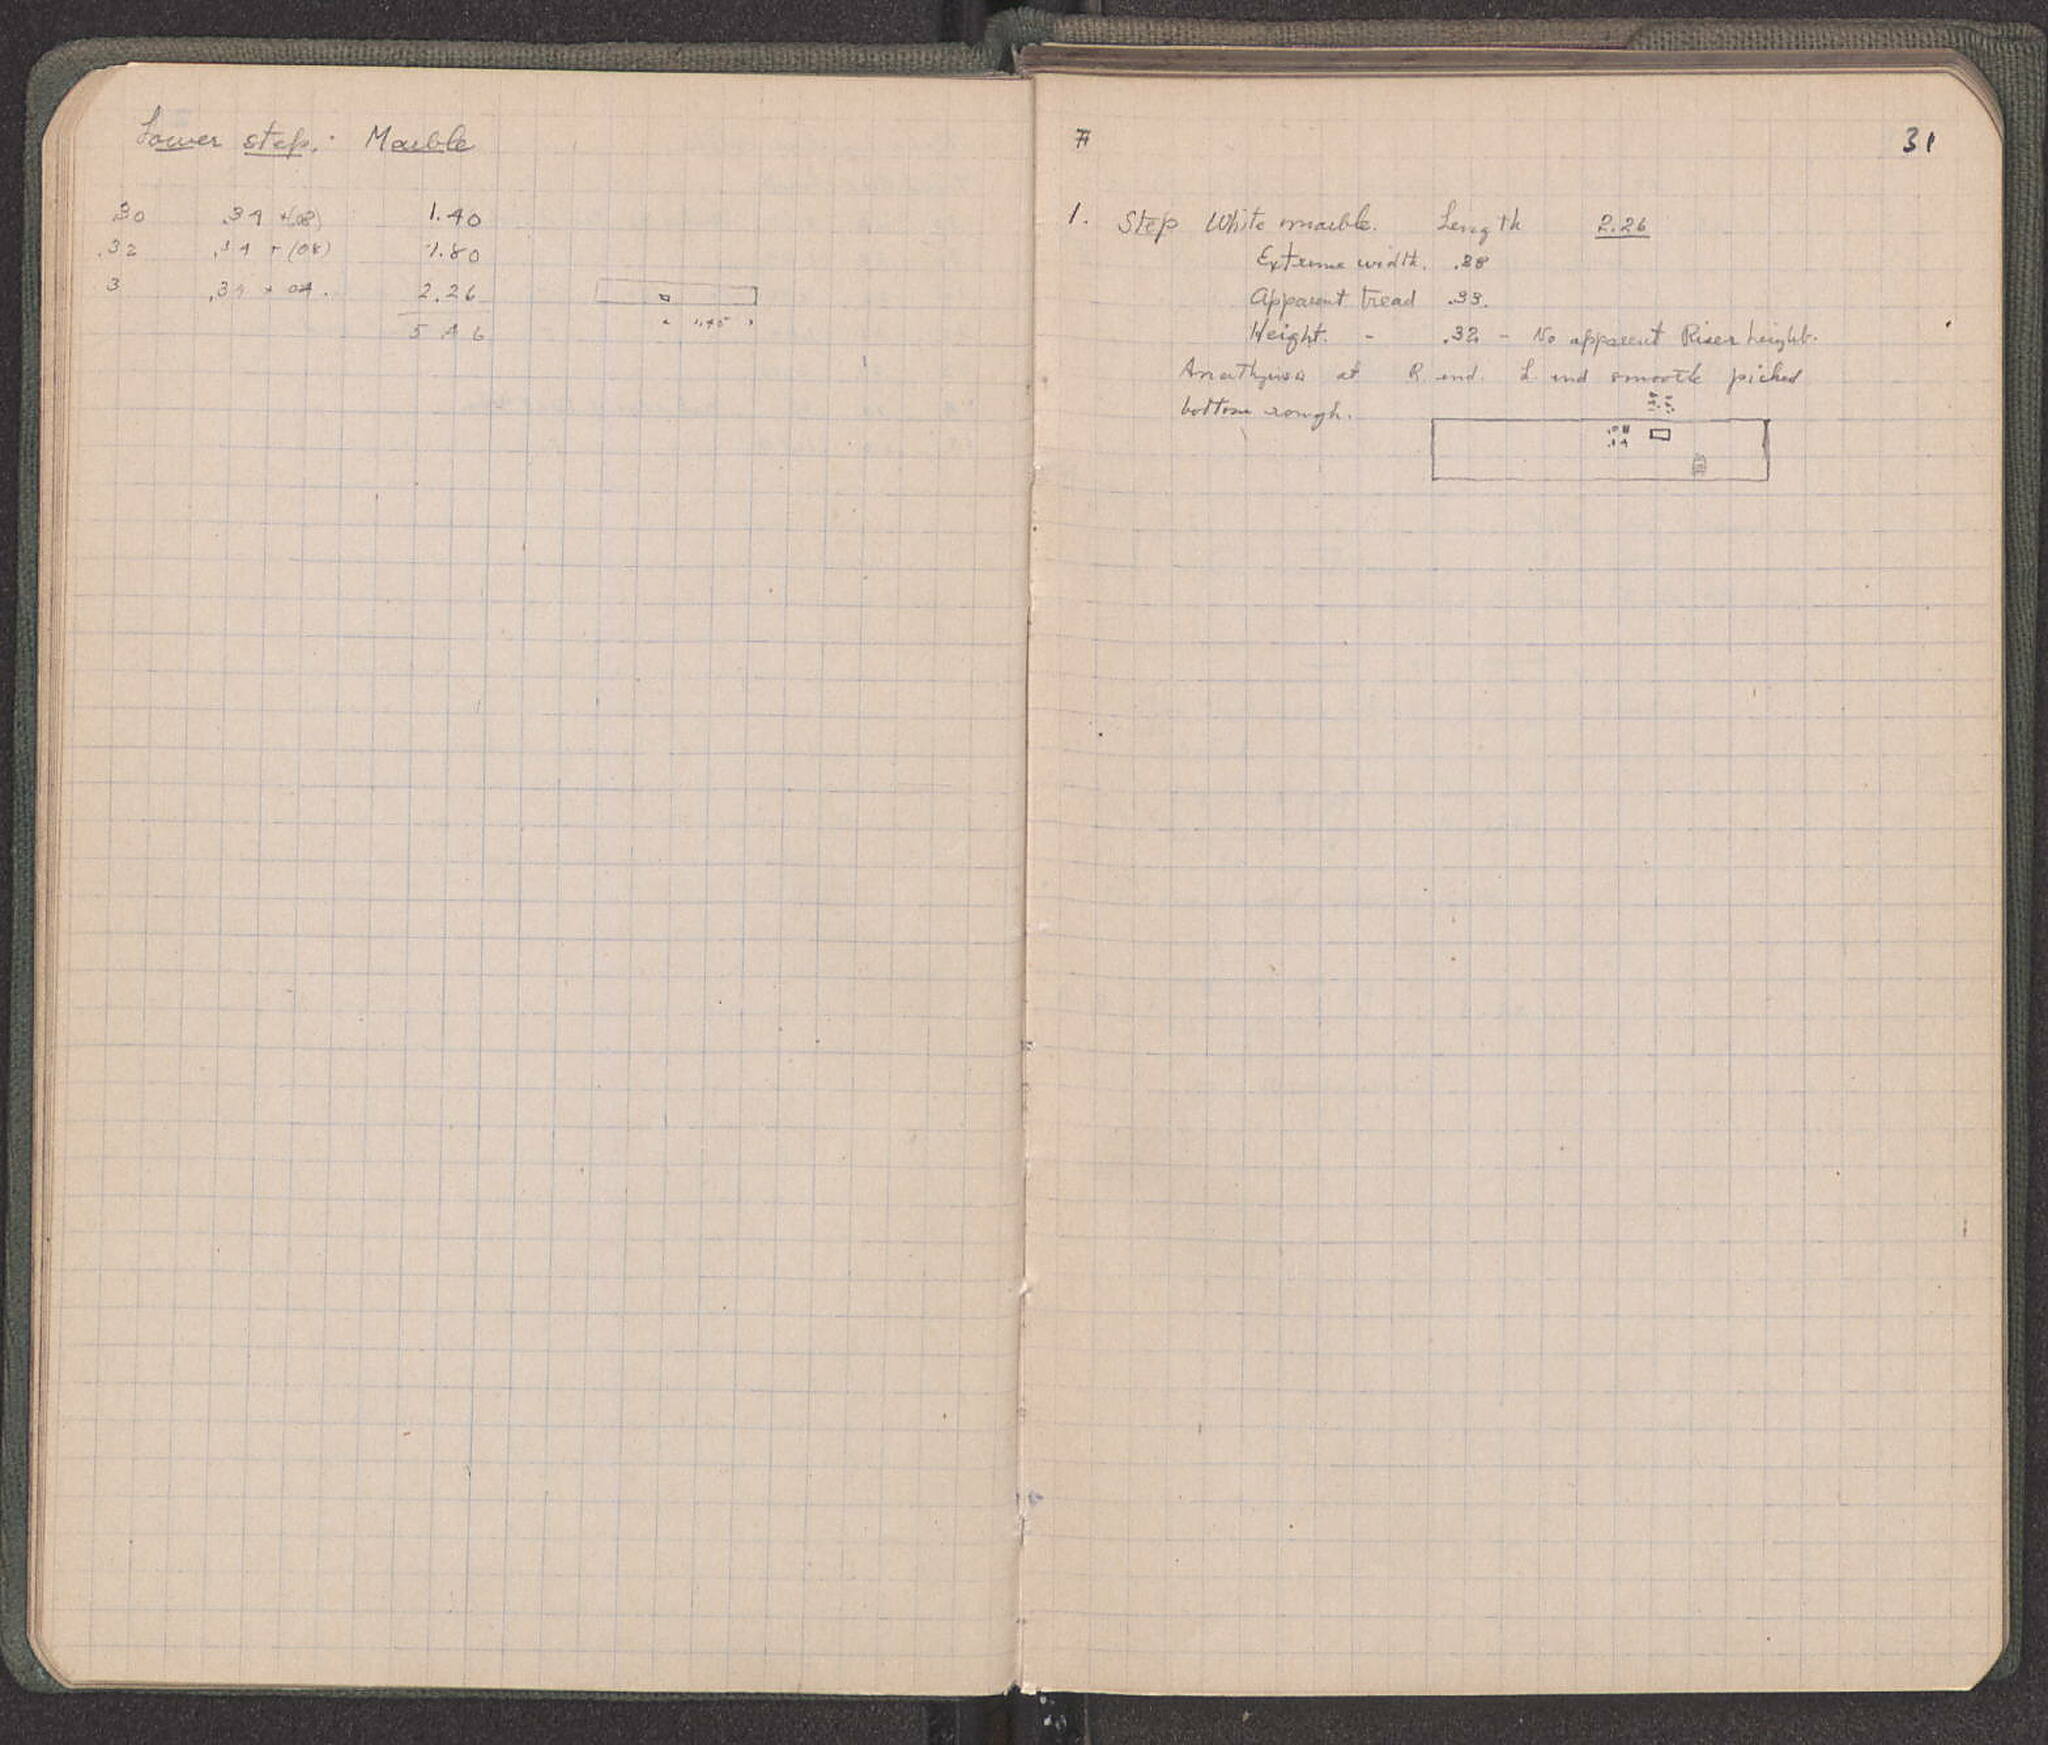 Lower step. Marble
.30 .34 +(08) 1.40
.32 .34 + (08) 1.80
3 .34 + 04. 2.26
5 4 6
1.45
31
1. Step White marble. Length 2.26
Extreme width. .38
Apparent tread .33.
Height. - .32 - No apparent Riser height.
Anathyrosis at R. end. L. end smooth picked
bottom rough.